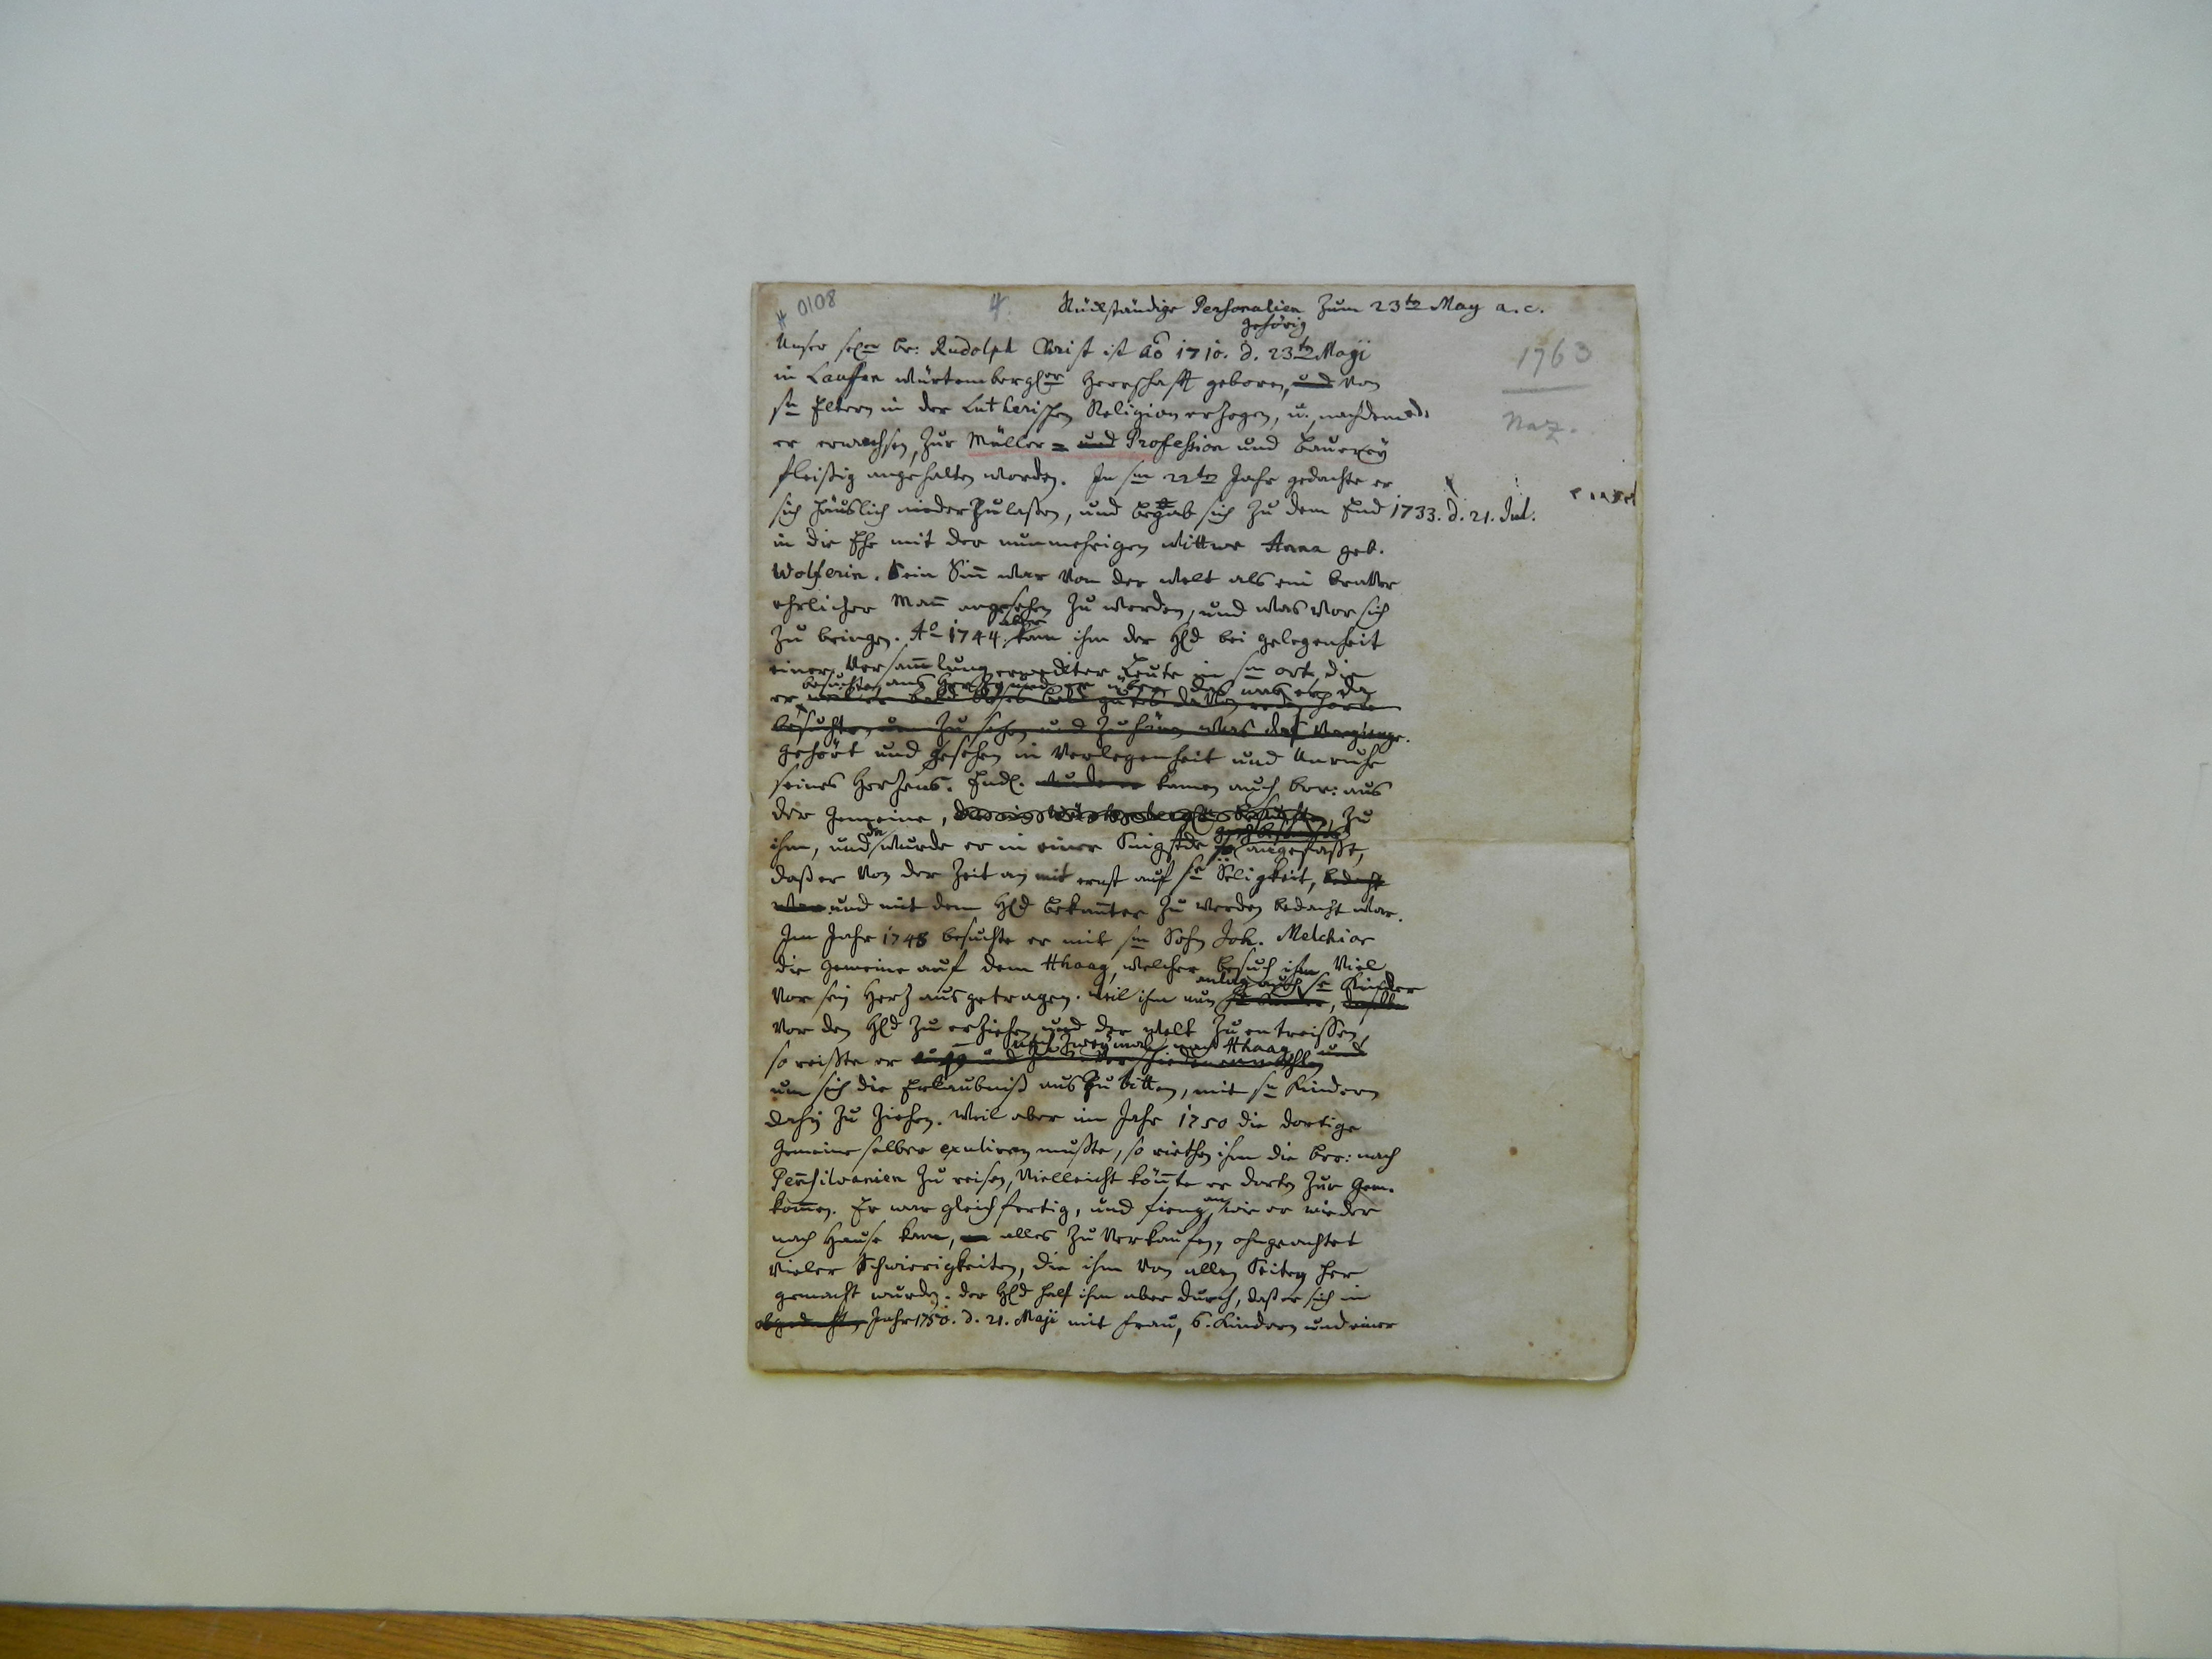 # 0108
4.
Rückständige Personalien zum 23ten May a. c.
gehörig
1763
Naz.
Unser selger Br: Rudolph Christ ist Ao 1710. d. 23ten Maji
in Lauffen Würtembergscher Herrschafft geboren, und von
sn Eltern in der Lutherischen Religion erzogen, u. nachdem
er erwachsen, zur Müller = und Profession und Bauerey
fleißig angehalten worden. In sm 22ten Jahr gedachte er
sich häuslich niederzulaßen, und begab sich zu dem End 1733. d. 21. Jul.
in die Ehe mit der nunmehrigen Wittwe Anna geb.
Wolferin. Sein Sinn war von der Welt als ein braver
ehrlicher Mann angesehen zu werden, und was vor sich
zu bringen. Ao 1744. aber kam ihm der Hld bei gelegenheit
einer Versammlung erweckter Leute in sm ort, die
er besuchte, ans Herz, und er über das was er da
besuchte, um zu sehen und zu hören was das vorginge.
gehört und gesehen in Verlegenheit und Unruhe
seines Herzens. Endl. kamen auch Brr: aus
der Gemeine, zu
ihm, und da wurde er in einer Singstde angefaßt,
daß er von der Zeit an mit ernst auf se Seligkeit, bedacht
war und mit dem Hld bekannter zu werden bedacht war.
Im Jahr 1748 besuchte er mit sm Sohn Joh. Melchior
die Gemeine auf dem Hhaag, welcher besuch ihm viel
vor sein Herz ausgetragen. Weil ihm nun anlag auch se Kinder
vor den Hld zu erziehen und der Welt zu entreissen,
so reißte er noch zweymal nach Hhaag und
um sich die Erlaubniß auszubitten, mit sn Kindern
dahin zu ziehen. Weil aber im Jahr 1750 die dortige
Gemeine selber exuliren mußte, so riethen ihm die Brr: nach
Pennsilvanien zu reisen, vielleicht könnte er dorten zur Gem.
kommen. Er war gleich fertig, und fieng an, wie er wieder
nach Hause kam, alles zu verkaufen, ohngeachtet
vieler Schwierigkeiten, die ihm von allen Seiten her
gemacht wurden. der Hld half ihm aber durch, daß er sich in
obgedachten Jahr 1750. d. 21. Maji mit Frau, 6. Kindern und einer